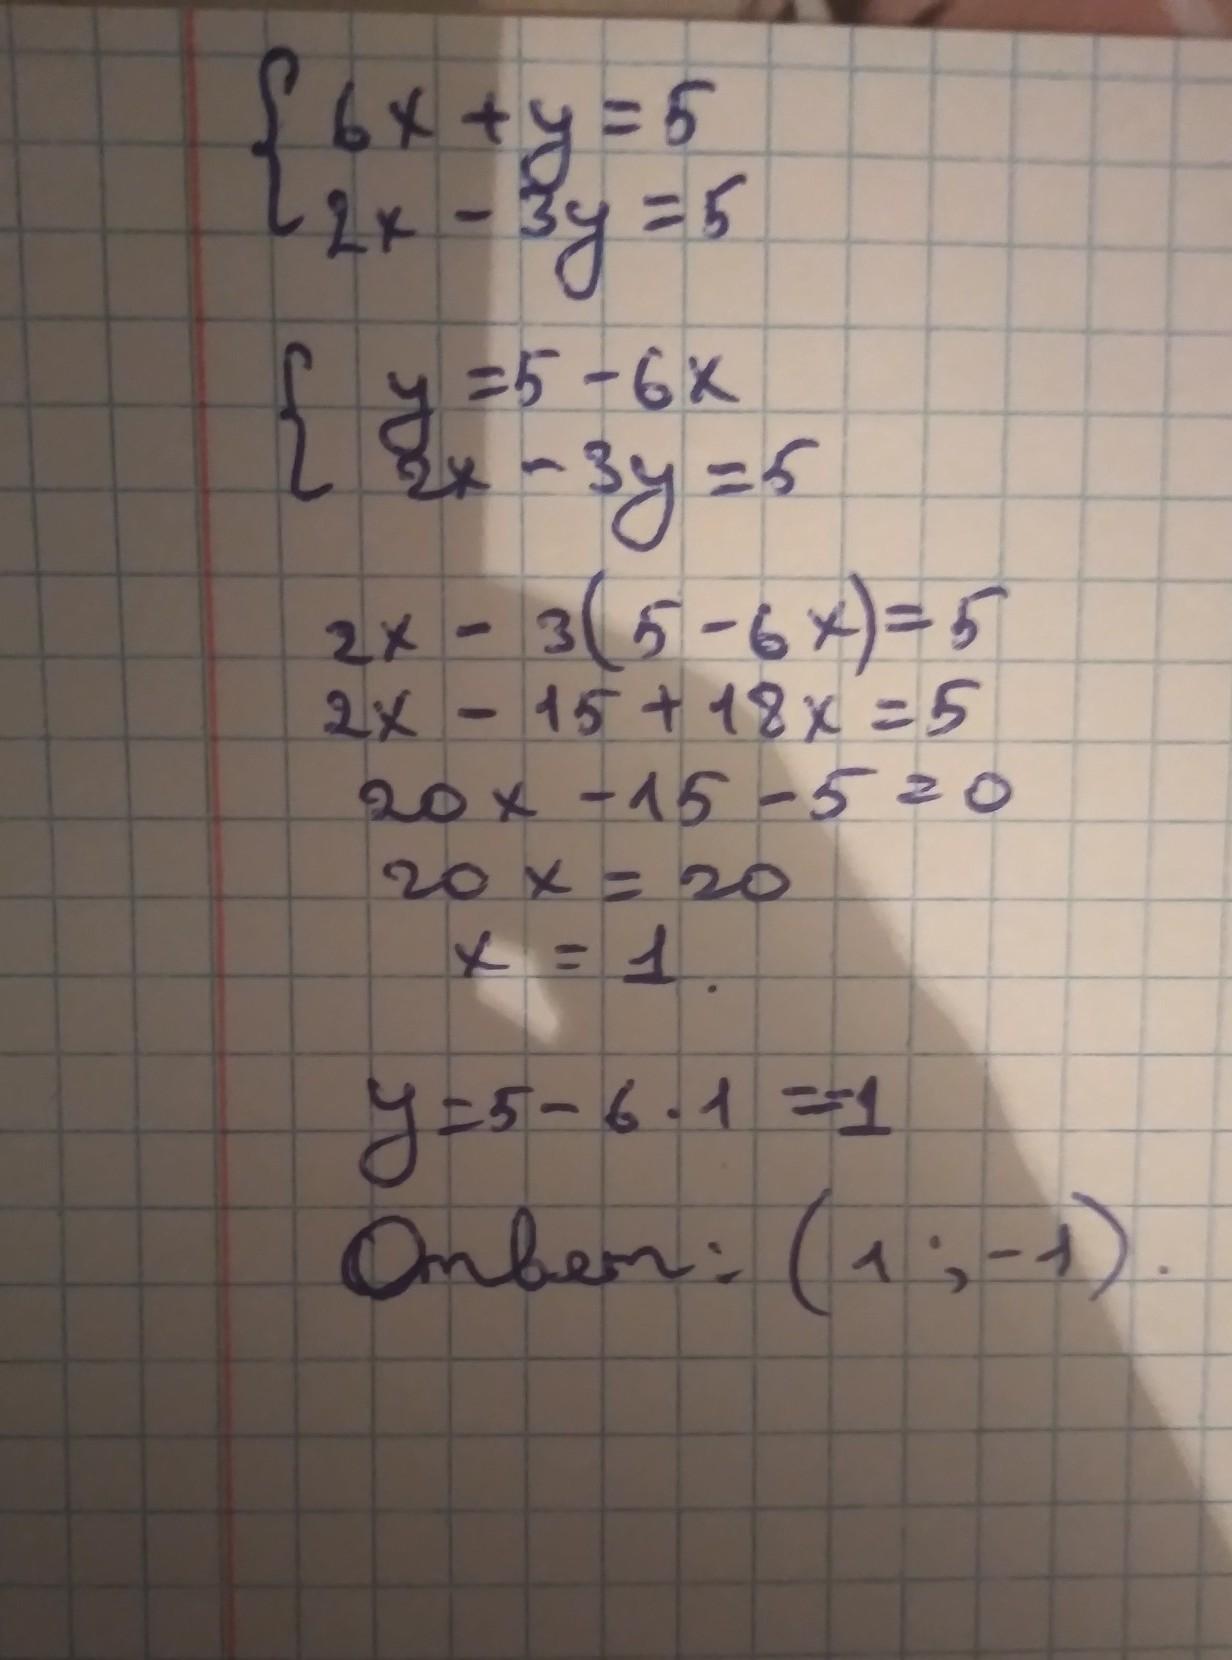 { 6x + y = 5
2x - 3y = 5
{ y = 5 - 6x
2x - 3y = 5
2x - 3(5 - 6x) = 5
2x - 15 + 18x = 5
20x - 15 - 5 = 0
20x = 20
x = 1.
y = 5 - 6 · 1 = -1
Ответ: (1 ; -1).